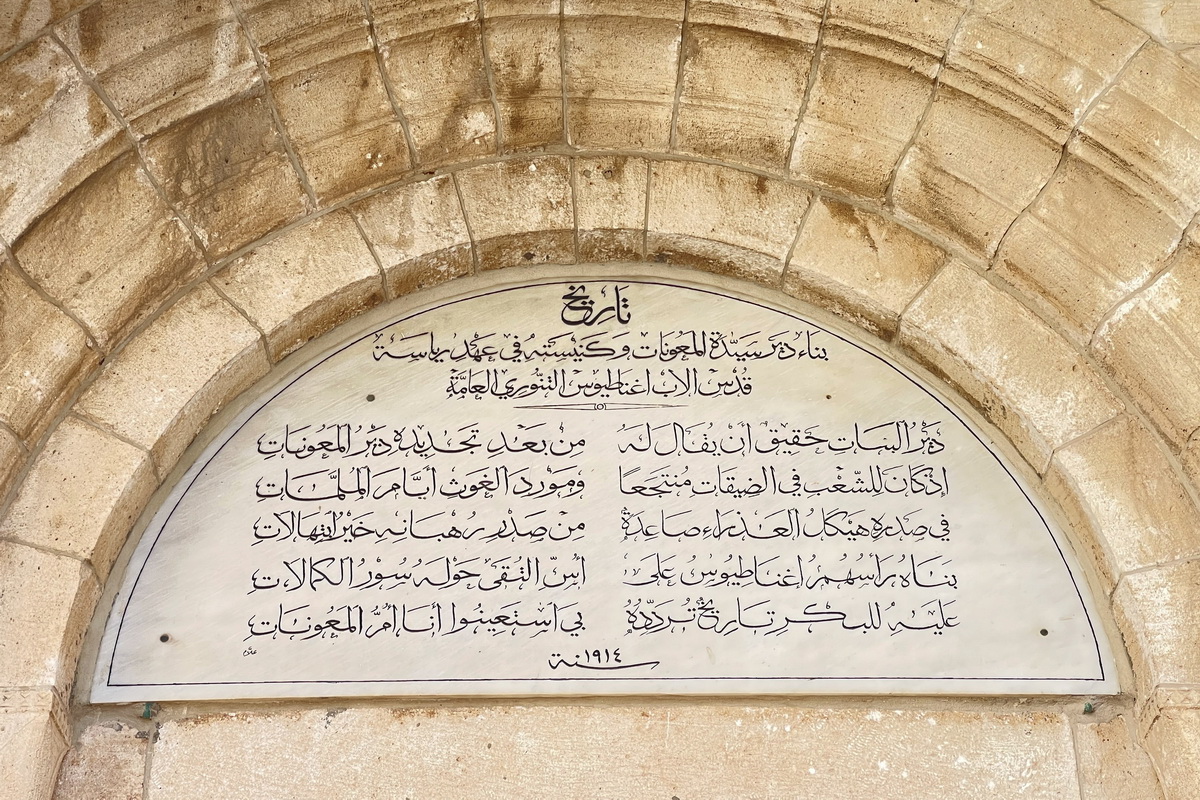 تاريخ
بناء دير سيّدة المعونات وكنيسته في عهد رياسة
قدس الاب اغناطيوس التنّوري العامّة
ديرُ البنات حقيقٌ أن يُقال لهُ من بعد تجديده دير المعونات
اذ كان للشعب في الضيقات منتجعًا ومورد الغوث أيّام الملمّات
في صدره هيكل العذراء صاعدةٌ من صدر رهبانه خير ابتهالات
بناه رأسهم اغناطيوس على أسّ التقى حوله سور الكمالات
عليه للبكر تاريخٌ تردّدهُ بي استعينوا أنا أمّ المعونات
سنة ١٩١٤